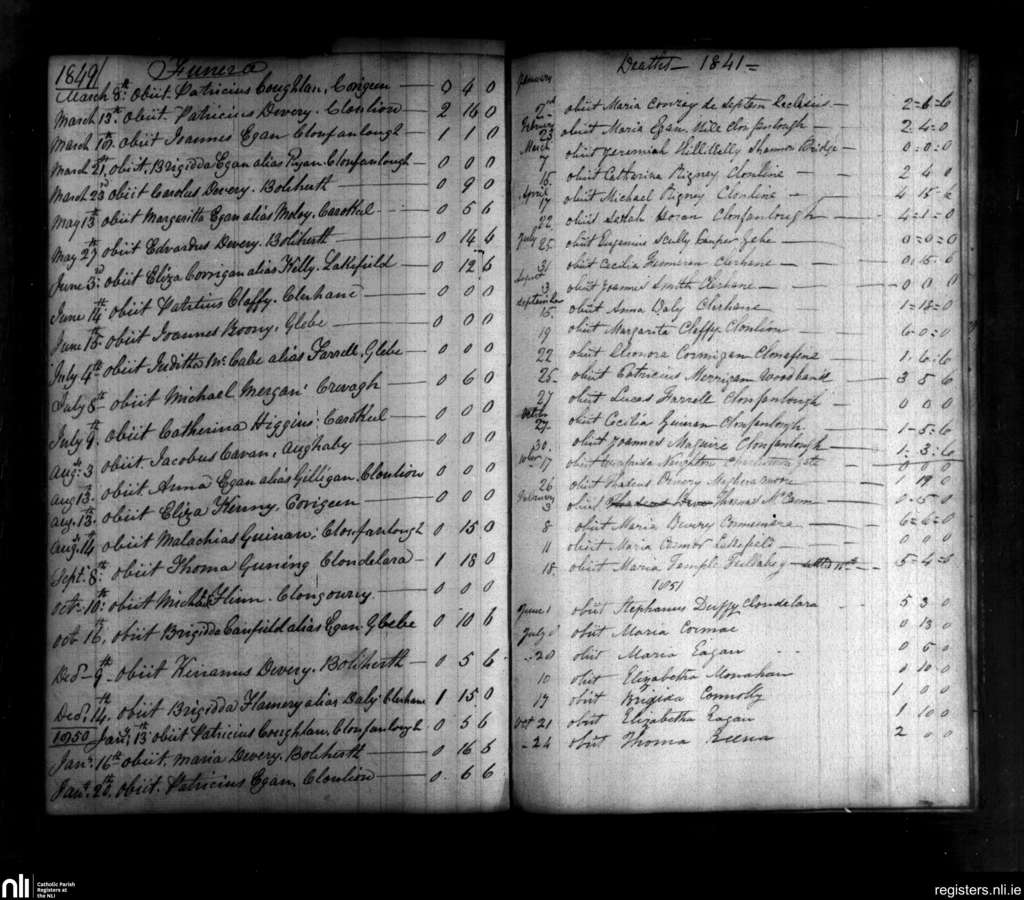 1849 Funera
March 8th: obiit. Patricius Coughlan, Corigeen — 0 4 0
March 13th. obiit. Patricius Devery. Clonlion — 2 16 0
March 16th. obiit Joannes Egan Clonfanlough — 1 1 0
March 21st, obiit, Brigidda Egan alias Ryan. Clonfanlough — 0 0 0
March 23d obiit Carolus Devery. Boliherth — 0 9 0
May 13th obiit Margaritta Egan alias Moloy. Carokeel — 0 5 6
May 27th obiit Edvardus Devery. Boliherth — 0 14 6
June 3d: obiit Eliza Corrigan alias Killy. Lakefield — 0 12 6
June 14th obiit Patritius Claffy. Clerhane — 0 0 0
June 15th obiit Joannes Boony. Glebe — 0 0 0
July 4th obiit Juditha Mc Cabe alias Farrell, Glebe — 0 0 0
July 8th obiit Michael Mergan Crevagh — 0 6 0
July 9th. obiit Catherina Higgins: Carokeel — 0 0 0
Augt: 3 obiit Jacobus Cavan, Aughaby — 0 0 0
Aug 13th. obiit Anna Egan alias Gilligan. Clonlion 0 0 0
Aug. 13th. obiit Eliza Kenny. Corigeen — 0 0 0
Augt. 14 obiit Malachias Guinan; Clonfanlough 0 15 0
Sept. 8th: obiit Thoma Guning Clondelara — 1 18 0
Oct. 10th: obiit Michael Flinn. Clongowny. — 0 0 0
Oct 16th. obiit Brigidda Canfield alias Egan Glebe 0 10 6
Decr. 9th obiit Kiranus Devery. Boliherth — 0 5 6
Decr. 14th. obiit Brigidda Flamery alias Daly Clerhane 1 15 0
1850 Jany. 13th obiit Patricius Coughlan, Clonfanlough 0 5 6
Jany. 16th obiit, Maria Devery. Boliherth — 0 16 6
Jany. 20th. obiit. Patricius Egan, Clonlion — 0. 6 6
Deaths — 1841 =
January
2nd obiit Maria Conray de Septem Eclesiis — 2=6=0
February 23 obiit Maria Egan Clonfanlough — 2 4=0
March 7 obiit Jeremiah Shannon Bridge — 0=0=0
15. obiit Catharina Rigney Clonlion — 2 4 0
April 17 obiit Michael Rigney Clonlion — 4 15
22 obiit Sarah Horan Clonfanlough — 4=1=0
July 25. obiit Eugenius Scully Pauper Glebe — 0=0=0
31 obiit Cecilia Clerhane — 0 15.6
August 3 obiit Joannes Smith Clerhane — 0 0 0
September 15. obiit Anna Daly Clerhane — 1=18=0
19 obiit Margarita Claffy. Clonlion — 6=0=0
22 obiit Eleonora Corrnigan Clonafine — 1.6=6
25 obiit Patricius Merrigan Woodbank — 3 5 6
27 obiit Lucas Farrell Clonfanlough — 0 0 0
October 27. obiit Cecilia Guinan Clonfanlough. 1=5=6
30. obiit Joannes Maguire Clonfanlough — 1=3=6
10ber 17 obiit Naighton 0 0 0
26 obiit Thadeus Devery 1 19 0
February 3 obiit Thomas McCann — 0=5 0
8 obiit Maria Devery — 6=6=0
11 obiit Maria Connor Lakefield — 0 0 0
18. obiit Maria Temple 5=4=
1851
June 1 obiit Stephanus Duffy Clondelara 5 3 0
July 8 obiit Maria Cormac 0 13 0
20 obiit Maria Eagan 0 5 0
10 obiit Elizabetha Monahan 0 10 0
17 obiit Brigida Connolly 1 0 0
Oct 21 obiit Elizabetha Eagan 1 10 0
24 obiit Thoma Keena 2 0 0
nli Catholic Parish Registers at the NLI
registers.nli.ie